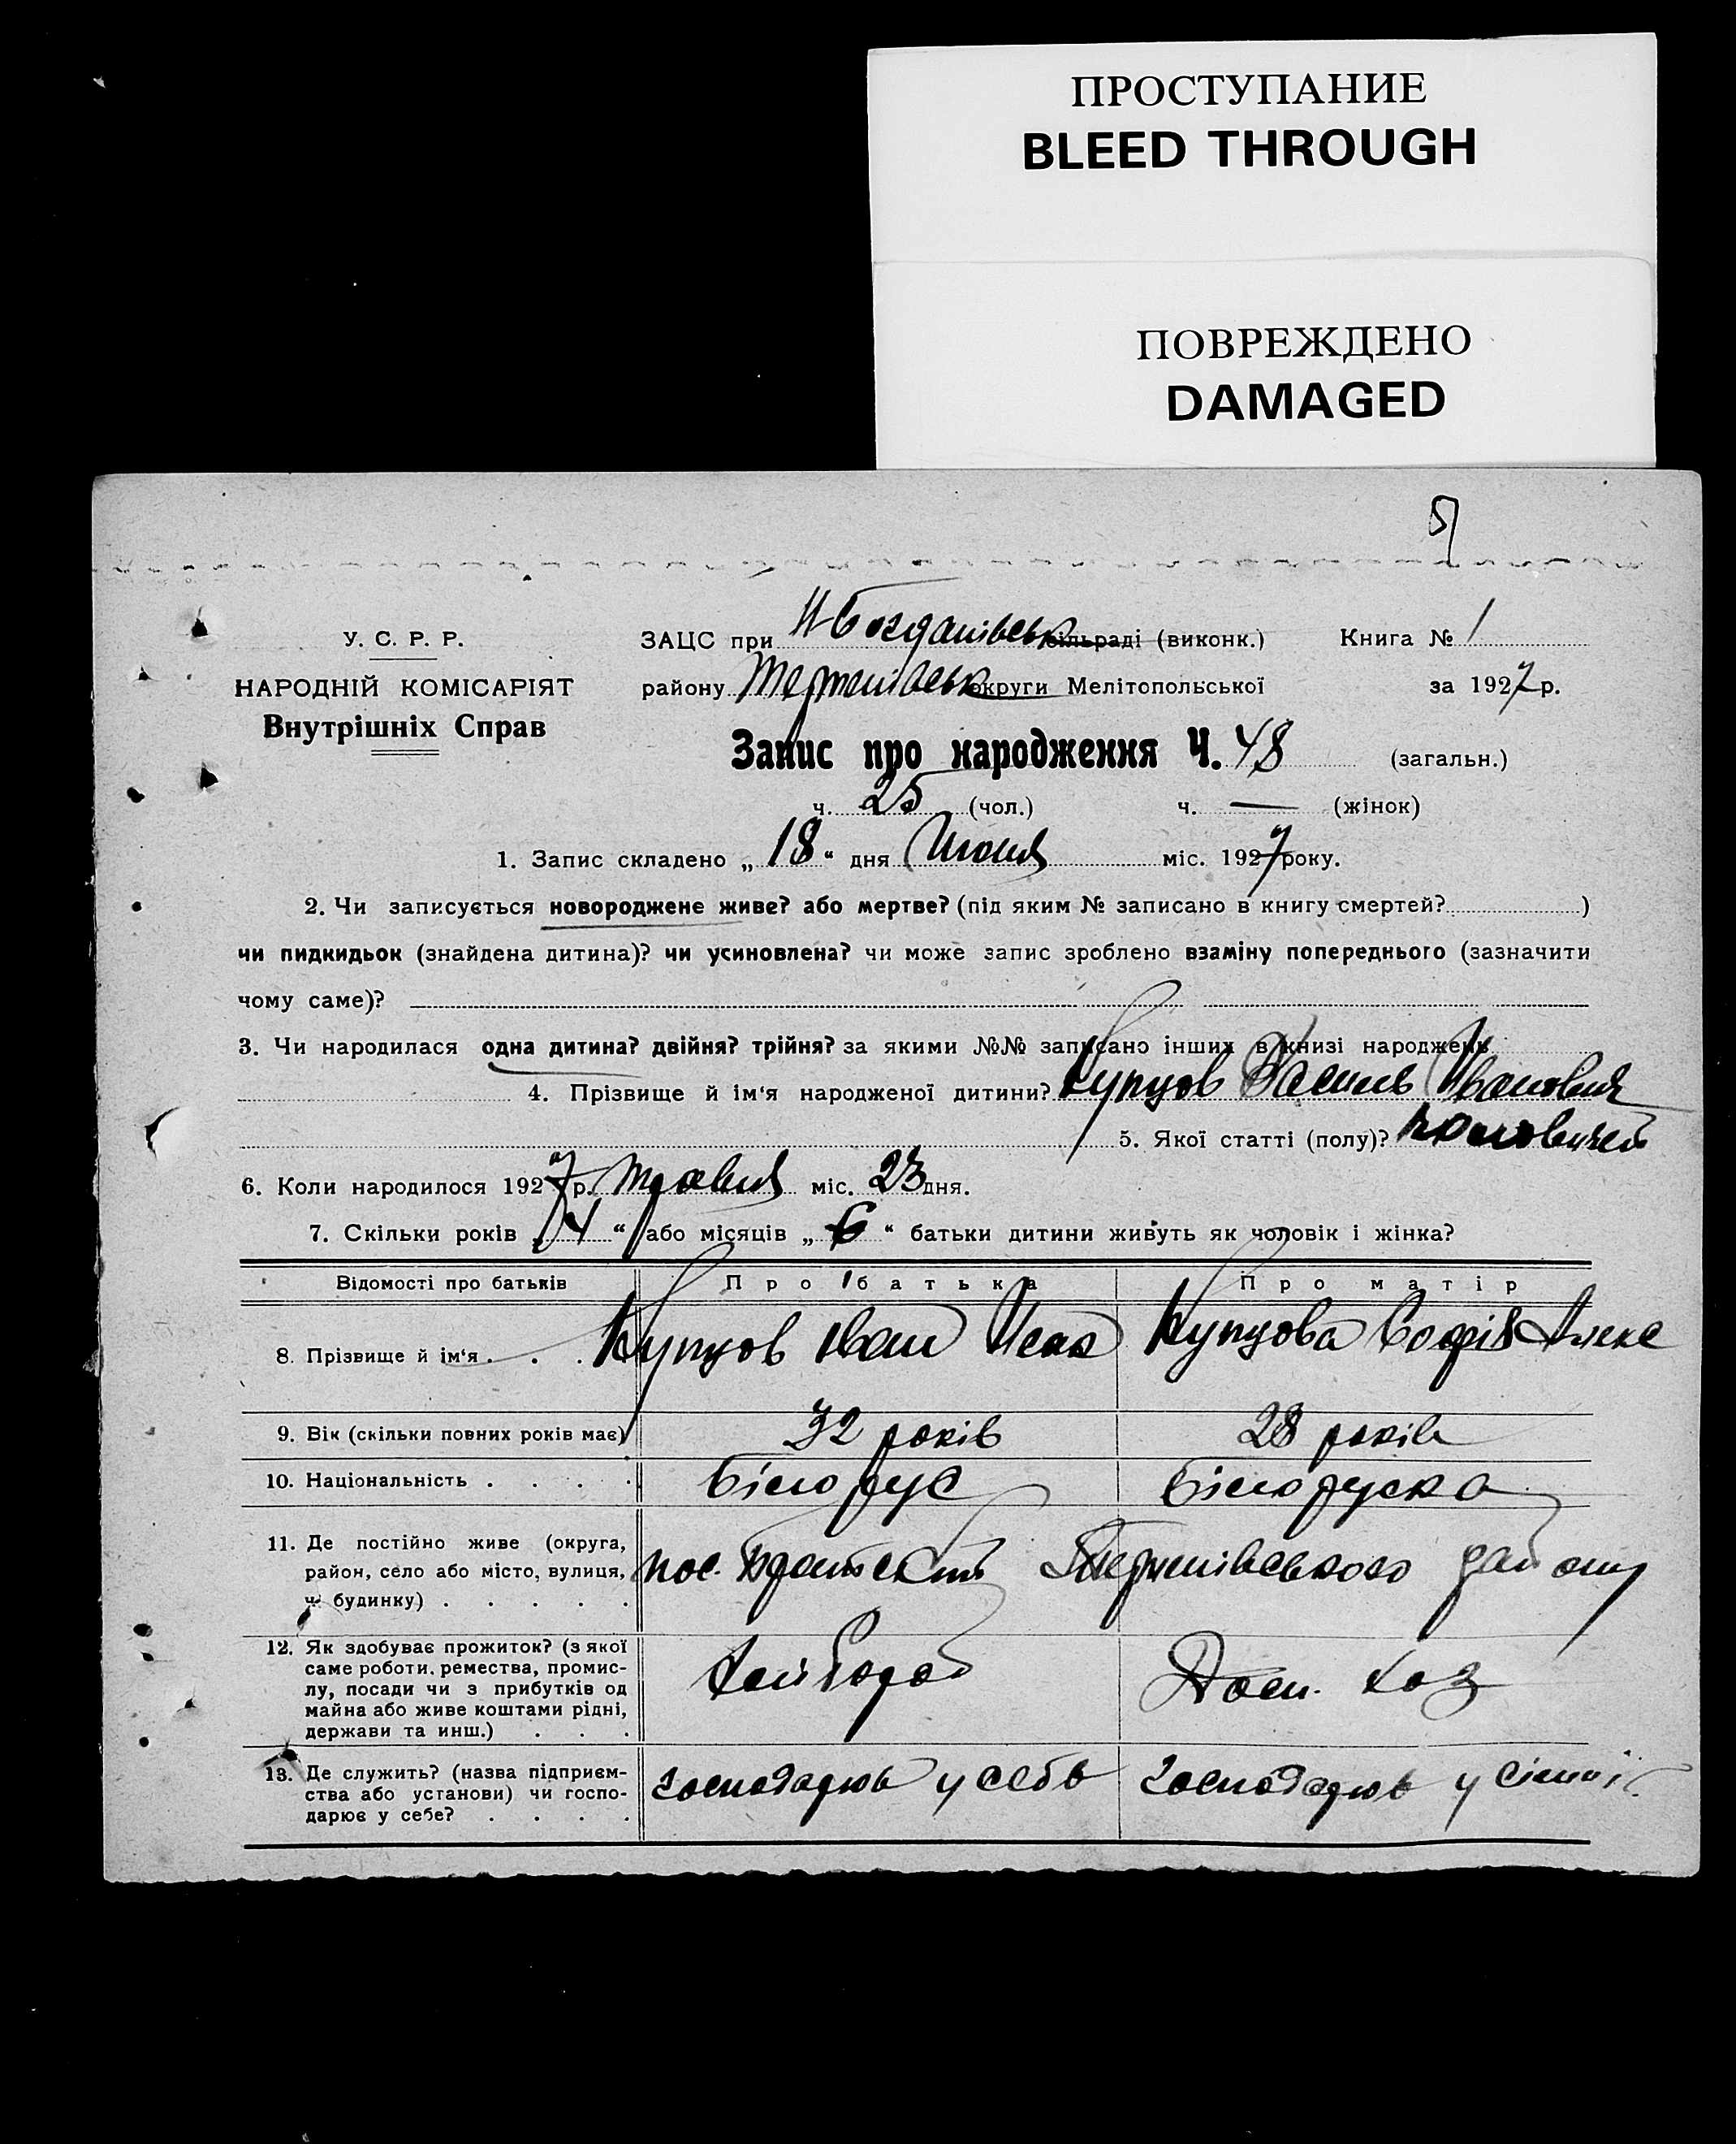 ПРОСТУПАНИЕ
BLEED THROUGH
ПОВРЕЖДЕНО
DAMAGED
51
У. С. Р. Р.
НАРОДНІЙ КОМІСАРІЯТ
Внутрішніх Справ
ЗАЦС при Н-Богданівськ сільраді (виконк.) Книга № 1
району Терпенівськ округи Мелітопольської за 1927 р.
Запис про народження Ч. 48 (загальн.)
ч. 25 (чол.) ч. — (жінок)
1. Запис складено „ 18 “ дня Июня міс. 1927 року.
2. Чи записується новороджене живе? або мертве? (під яким № записано в книгу смертей? )
чи пидкидьок (знайдена дитина)? чи усиновлена? чи може запис зроблено взаміну попереднього (зазначити
чому саме)?
3. Чи народилася одна дитина? двійня? трійня? за якими №№ записано інших в книзі народжень
4. Прізвище й ім‘я народженої дитини? Купцов Василь Іванович
5. Якої статті (полу)? чоловичей
6. Коли народилось 1927 р. травня міс. 23 дня.
7. Скільки років „ “ або місяців „ 6 “ батьки дитини живуть як чоловік і жінка?
Відомості про батьків Про батька Про матір
8. Прізвище й ім‘я . . . Купцов Іван Исак Купцова Софія Алекс
9. Вік (скільки повних років має) 32 років 28 років
10. Національність . . . . Білорус Білоруска
11. Де постійно живе (округа,
район, село або місто, вулиця,
ч. будинку) . . . . .
пос. Братский Терпенівського району
12. Як здобуває прожиток? (з якої
саме роботи, ремества, промис-
лу, посади чи з прибутків од
майна або живе коштами рідні,
держави та инш.) . . .
Дом. Хоз
13. Де служить? (назва підприєм-
ства або установи) чи госпо-
дарює у себе? . . . .
господарює у себе господарює у сімї